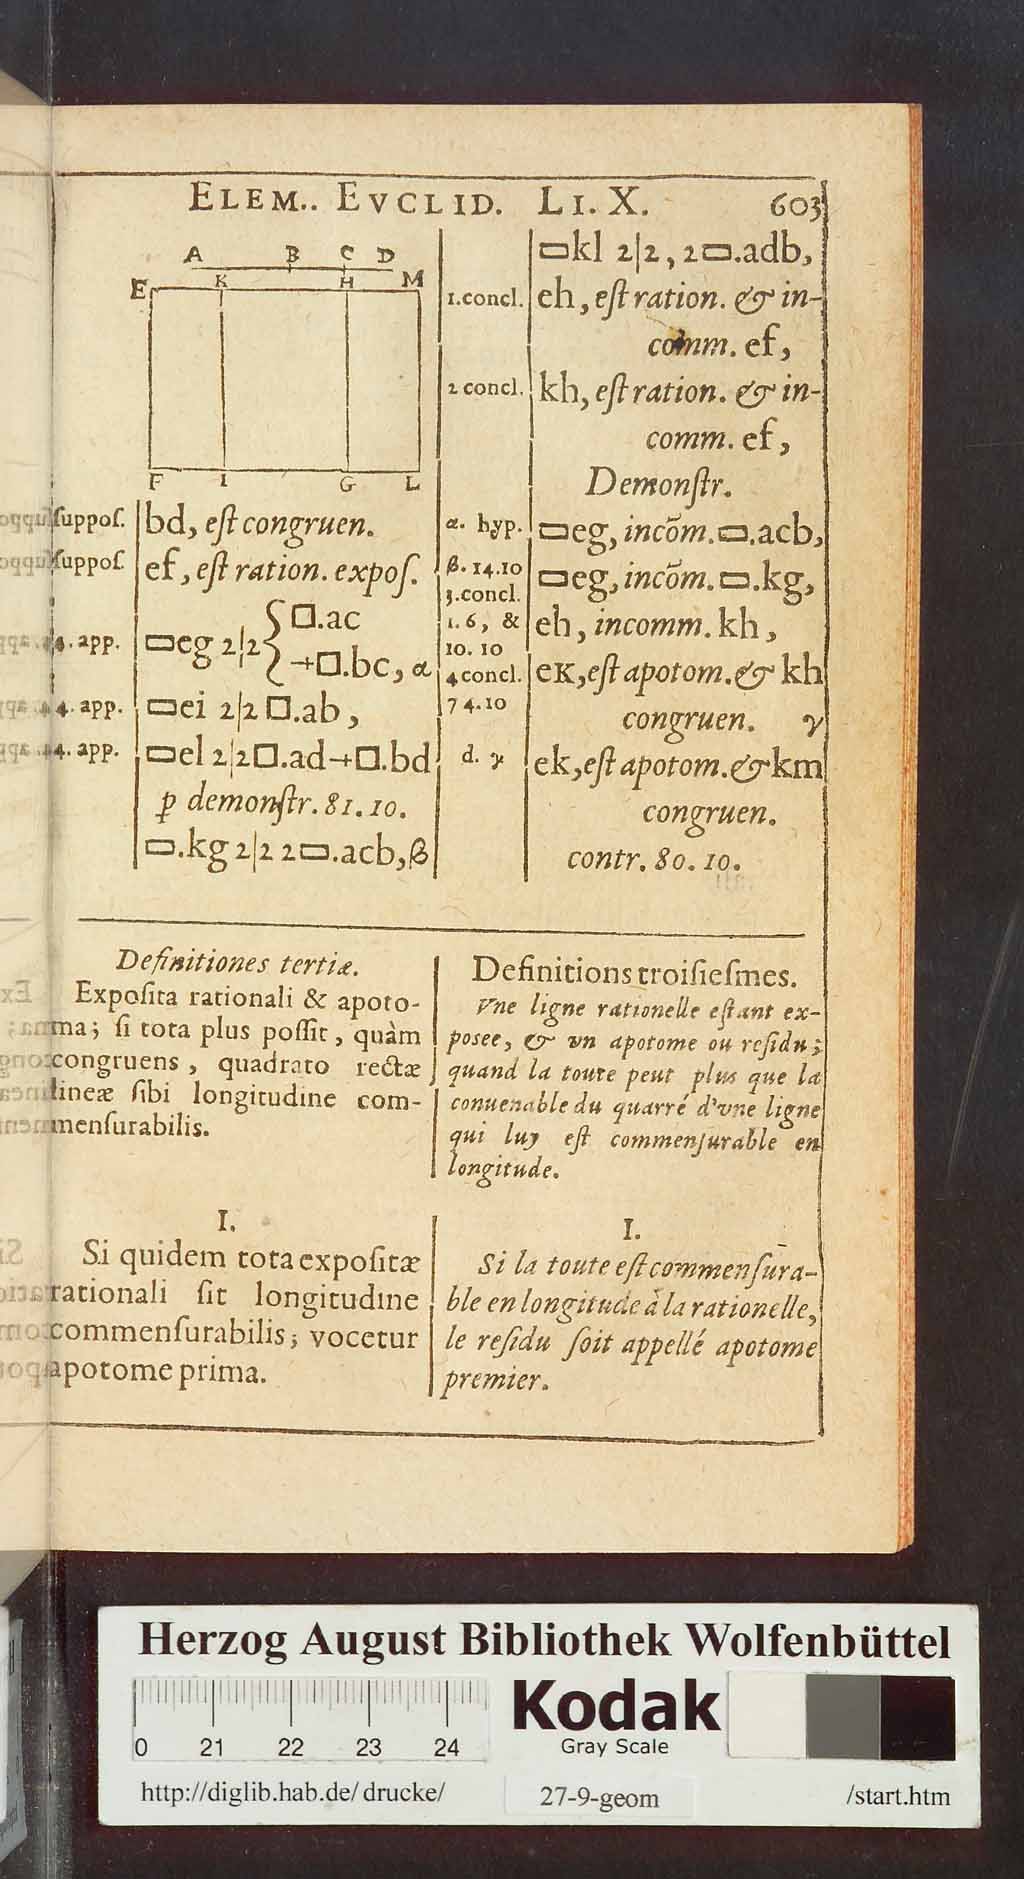 ELEM.. EVCLID. LI. X. 603
A B C D
E K H M
F I G L
suppos. bd, est congruen.
suppos. ef, est ration. expos.
4. app. ▭eg 2|2 { □.ac
~+□.bc, α
4. app. ▭ei 2|2 □.ab,
4. app. ▭el 2|2 □.ad ~+ □.bd
ꝑ demonstr. 81. 10.
▭.kg 2|2 2▭.acb, β
▭kl 2|2, 2▭.adb,
1. concl. eh, est ration. & in-
comm. ef,
2 concl. kh, est ration. & in-
comm. ef,
Demonstr.
α. hyp. ▭eg, incõm. ▭.acb,
β. 14. 10 ▭eg, incõm. ▭.kg,
3. concl.
1. 6, & eh, incomm. kh,
10. 10
4 concl. eK, est apotom. & kh
74. 10 congruen. γ
d. γ ek, est apotom. & km
congruen.
contr. 80. 10.
Definitiones tertiæ.
Exposita rationali & apoto-
ma; si tota plus possit, quàm
congruens, quadrato rectæ
lineæ sibi longitudine com-
mensurabilis.
I.
Si quidem tota expositæ
rationali sit longitudine
commensurabilis; vocetur
apotome prima.
Definitions troisiesmes.
Vne ligne rationelle estant ex-
posee, & vn apotome ou residu;
quand la toute peut plus que la
conuenable du quarré d'vne ligne
qui luy est commensurable en
longitude.
I.
Si la toute est commensura-
ble en longitude à la rationelle,
le residu soit appellé apotome
premier.
Herzog August Bibliothek Wolfenbüttel
0 21 22 23 24
Kodak
Gray Scale
http://diglib.hab.de/drucke/ 27-9-geom /start.htm